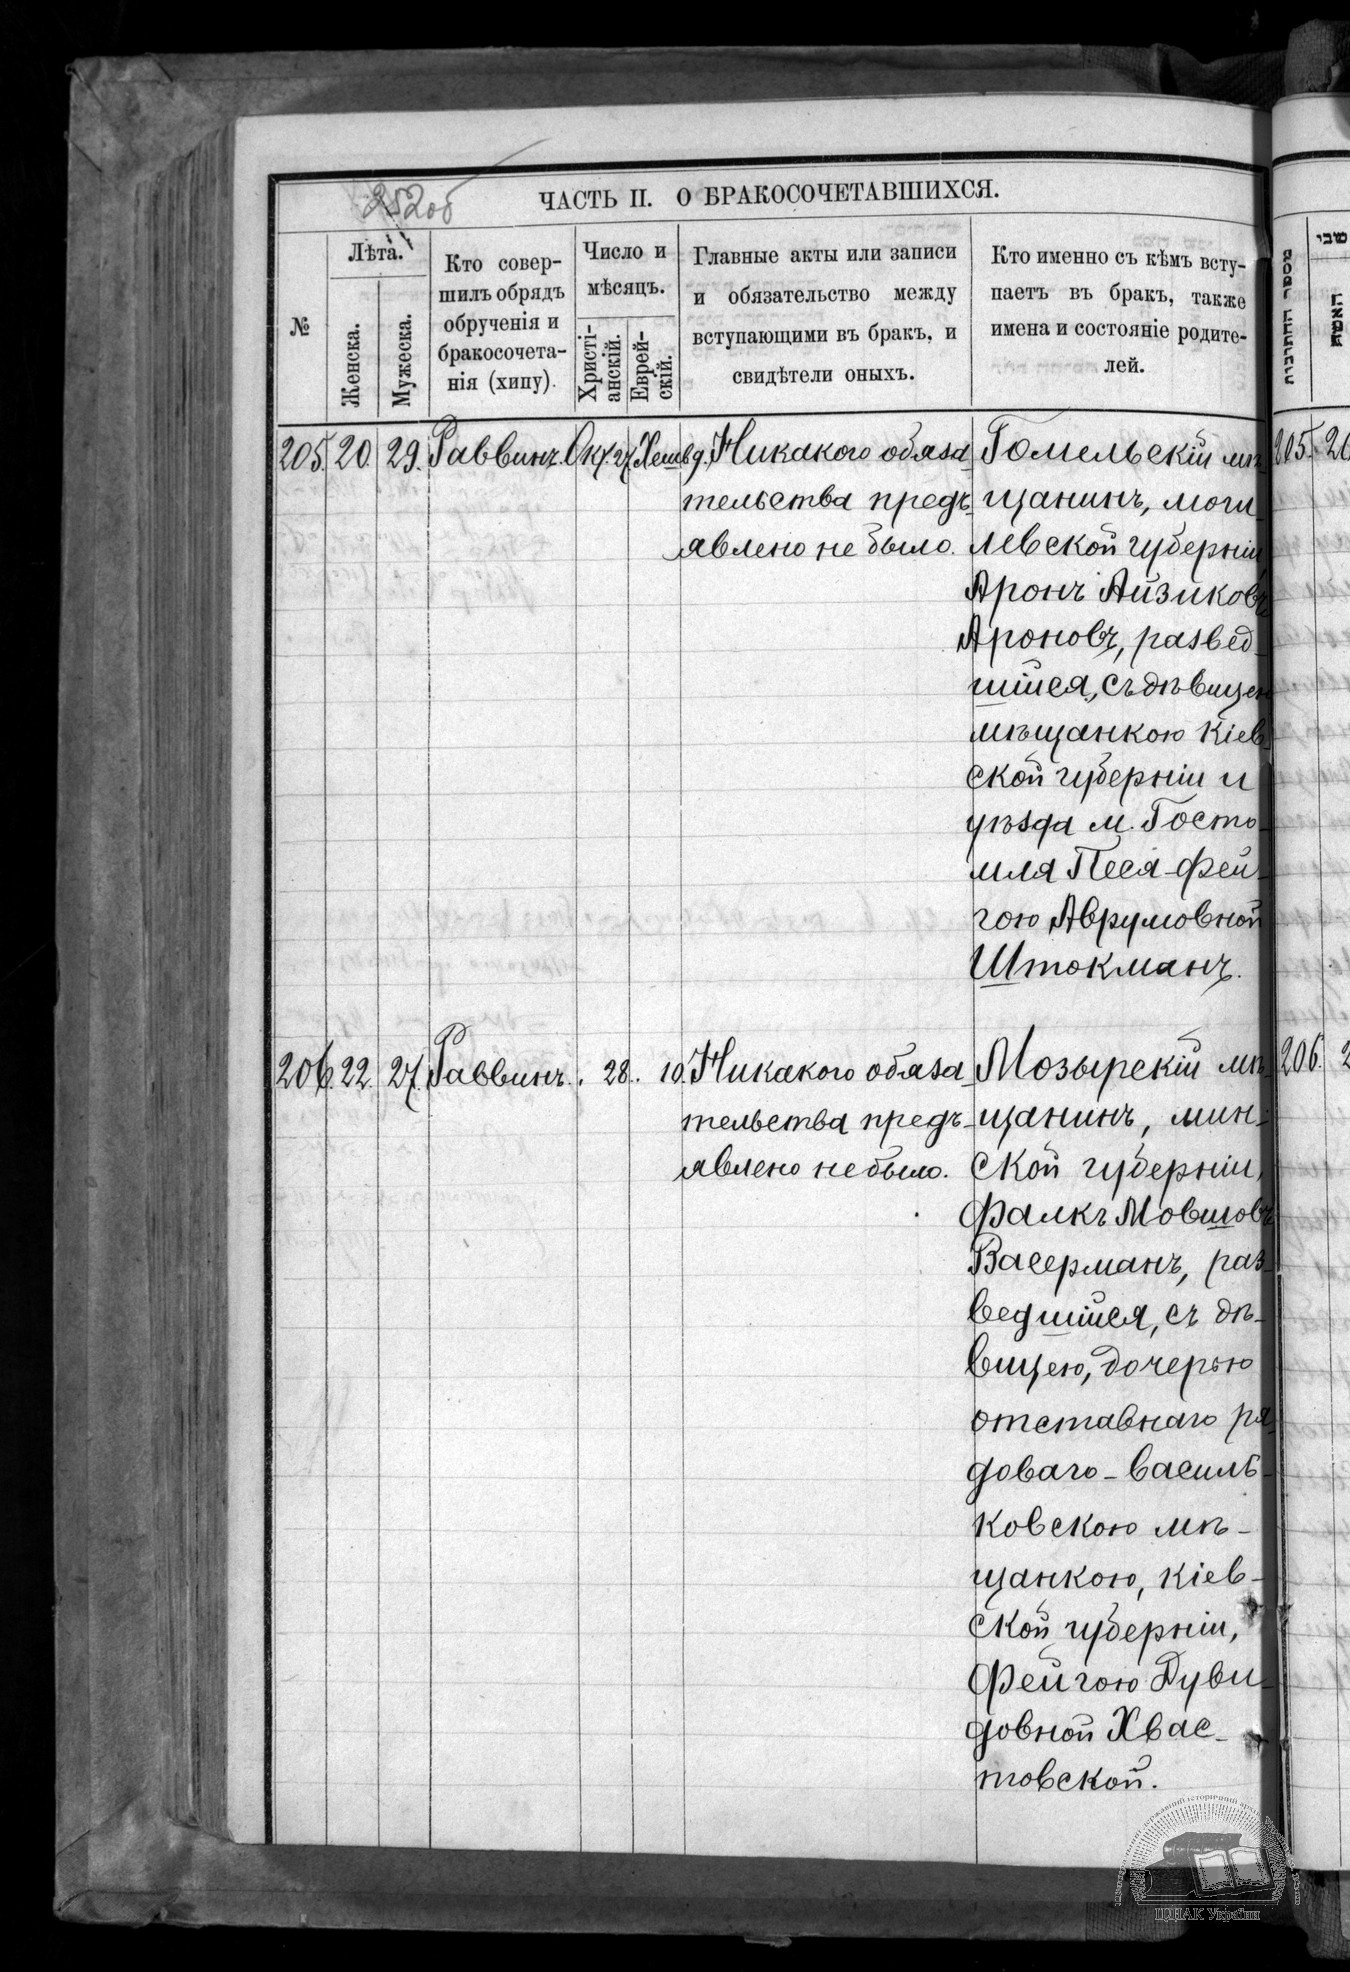 252об
ЧАСТЬ II. О БРАКОСОЧЕТАВШИХСЯ.
№
Лѣта.
Женска.
Мужеска.
Кто совер-
шилъ обрядъ
обрученія и
бракосочета-
нія (хипу).
Число и
мѣсяцъ.
Христі-
анскій.
Еврей-
скій.
Главные акты или записи
и обязательство между
вступающими въ бракъ, и
свидѣтели оныхъ.
Кто именно съ кѣмъ всту-
паетъ въ бракъ, также
имена и состояніе родите-
лей.
205. 20. 29. Раввинъ. Окт. 27 Хешв 9. Никакого обяза-
тельства предъ-
явлено не было.
Гомельскій мѣ-
щанинъ, моги-
левской губерніи,
Аронъ Айзиковъ
Ароновъ, развед-
шійся, съ дѣвицею
мѣщанкою Кіев-
ской губерніи и
уѣзда м. Госто-
мля Песя-Фей-
гою Аврумовной
Штокманъ.
206. 22. 27. Раввинъ. 28. 10. Никакого обяза-
тельства предъ-
явлено не было.
Мозырскій мѣ-
щанинъ, мин-
ской губерніи,
Фалкъ Мовшовъ
Васерманъ, раз-
ведшійся, съ дѣ-
вицею, дочерью
отставнаго ря-
доваго - василь-
ковскою мѣ-
щанкою, кіев-
ской губерніи,
Фейгою Дуви-
довной Хвас-
товской.
מספר החתונות
שני
האשה
205. 20
206. 2
ЦДІАК України